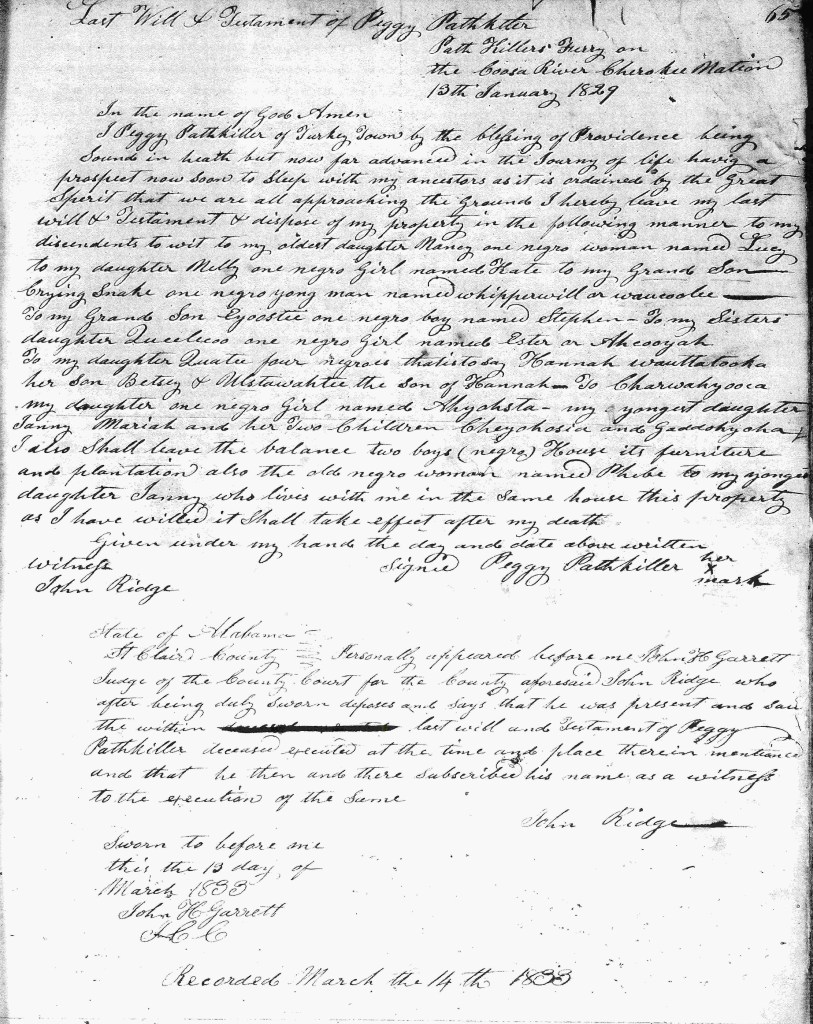 65
Last Will & Testament of Peggy Pathkiler
Path Killers Furry on
the Coosa River Cherokee Nation
13th January 1829
In the name of God Amen
I Peggy Pathkiller of Turkey Town by the blessing of Providence being
Sound in heath but now far advanced in the Journy of life havig a
prospect now soon to Sleep with my ancestors as it is ordained by the Great
Spirit that we are all approaching the Ground I hereby leave my last
will & Testament & dispose of my property in the following manner to my
discendents to wit to my oldest daughter Nancy one negro woman named Lucy
to my daughter Melly one negro Girl named Kate to my Grand Son
Crying Snake one negro yong man named whipperwill or waucoolee
To my Grand Son Eyoostee one negro boy named Stephen - To my Sisters
daughter Quelicoo one negro Girl named Ester or Ahcooyah
To my daughter Quatie four negroes that is to say Hannah wauttatooka
her Son Betsey & Ulstawahtee the Son of Hannah - To Charwahyooca
my daughter one negro Girl named Ahyohsta - my yongest daughter
Janny Mariah and her Two Children Cheyohosia and Gaddohyoha
I also Shall leave the balance two boys (negro) House its furniture
and plantation also the old negro woman named Phibe to my yonges
daughter Janny who lives with me in the Same house this property
as I have willed it Shall take effect after my death
Given under my hand the day and date above written
witness Signed Peggy Pathkiller her
x
mark
John Ridge
State of Alabama
St Clair County Personally appeared before me John H Garrett
Judge of the County Court for the County aforesaid John Ridge who
after being duly Sworn deposes and Says that he was present and Saw
the within last will and Testament of Peggy
Pathkiller deceased executed at the time and place therein mentioned
and that he then and there subscribed his name as a witness
to the execution of the Same
John Ridge
Sworn to before me
this the 13 day of
March 1833
John H Garrett
J C C
Recorded March the 14 th 1833